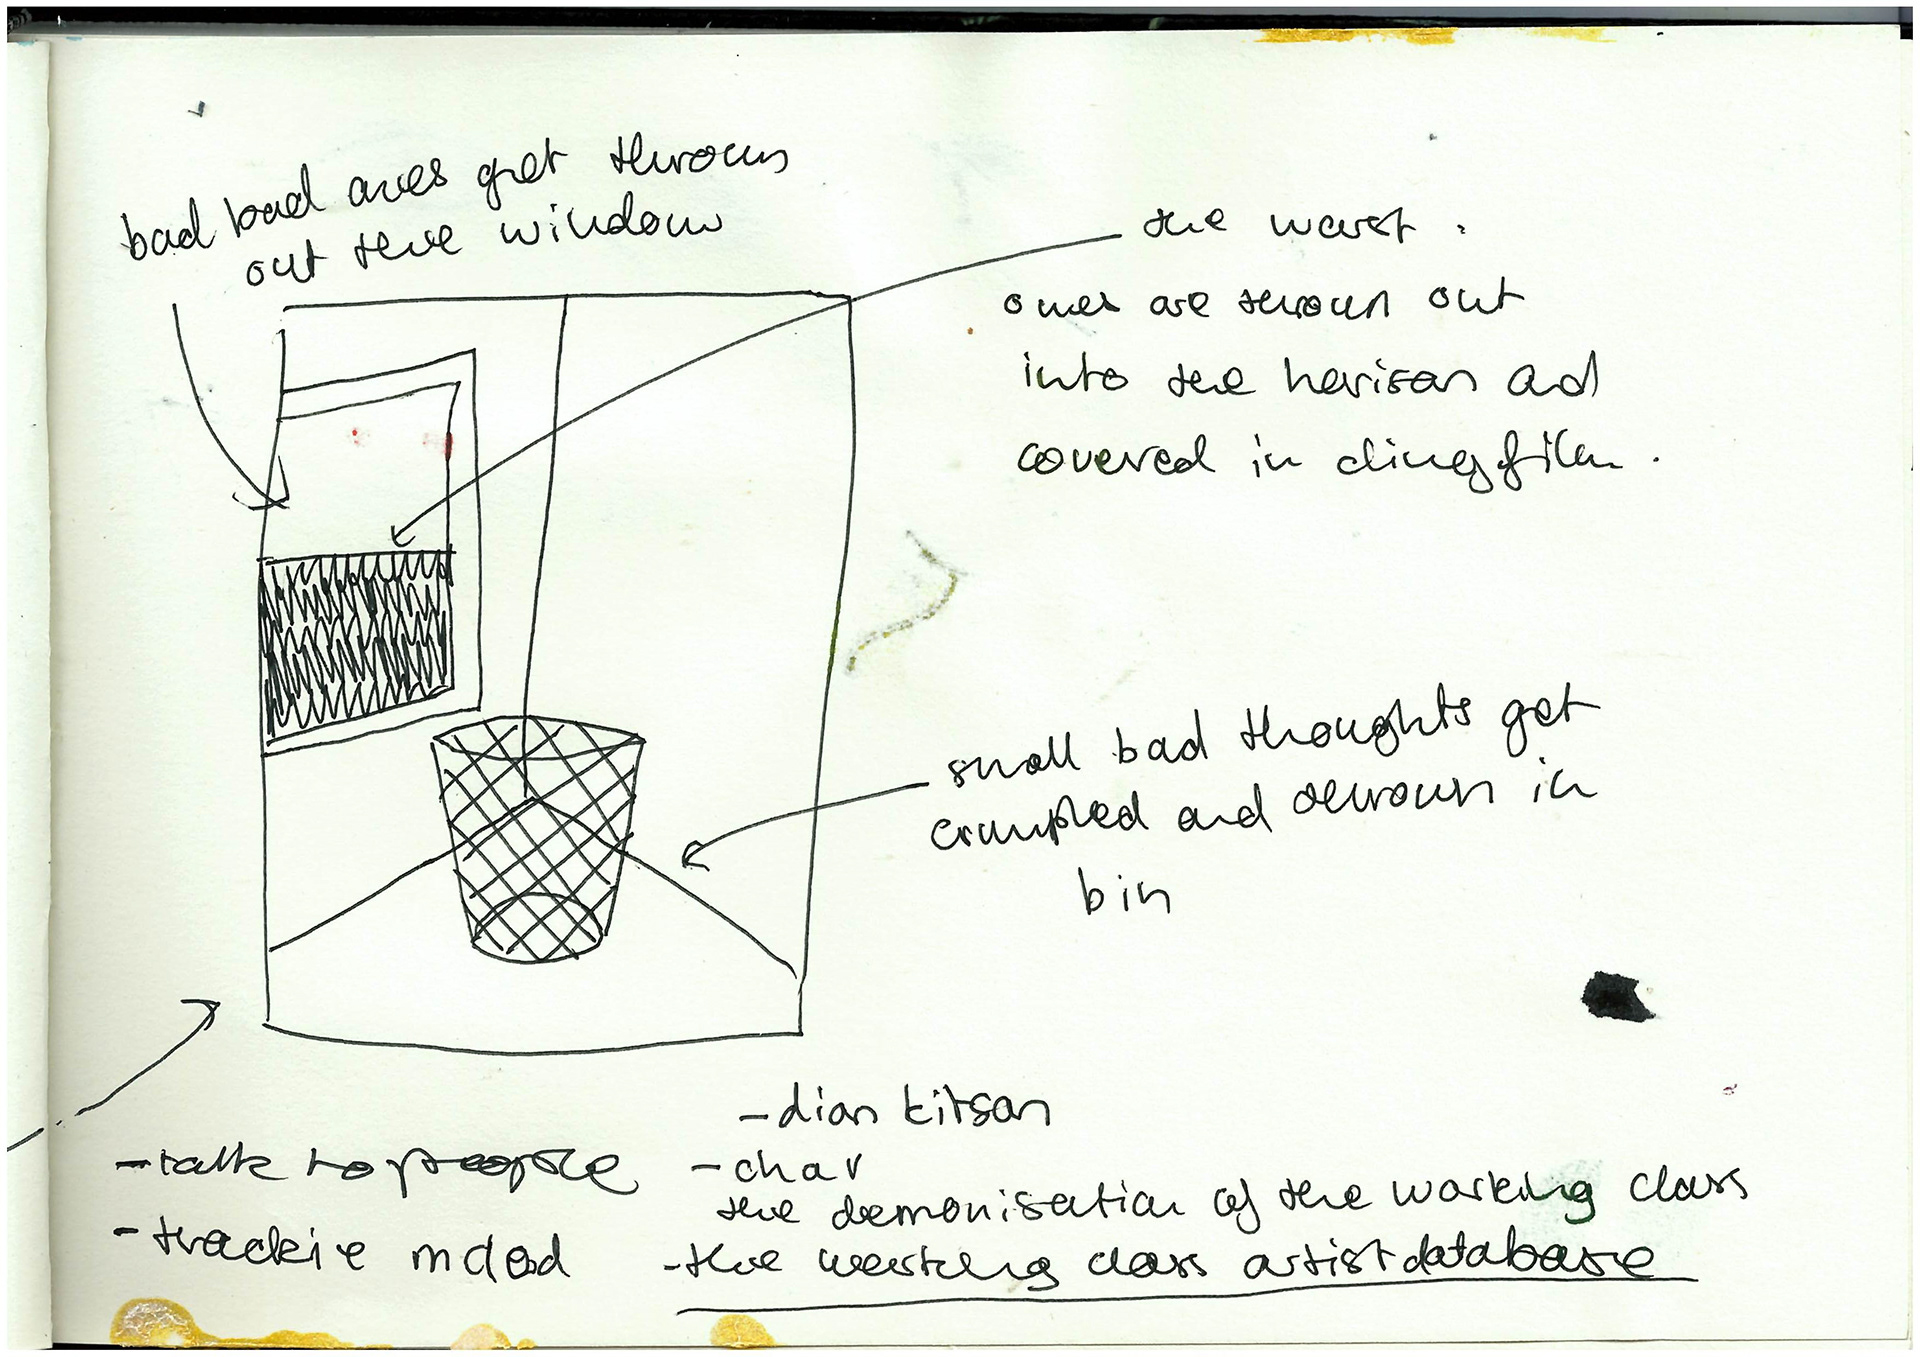 bad bad ones get thrown
out the window
the worst.
ones are thrown out
into the horison and
covered in clingfilm.
small bad thoughts get
crumpled and thrown in
bin
- dian kitson
- talk to people
- chav
the demonisation of the working class
- trackie mclod
- the working class artist database